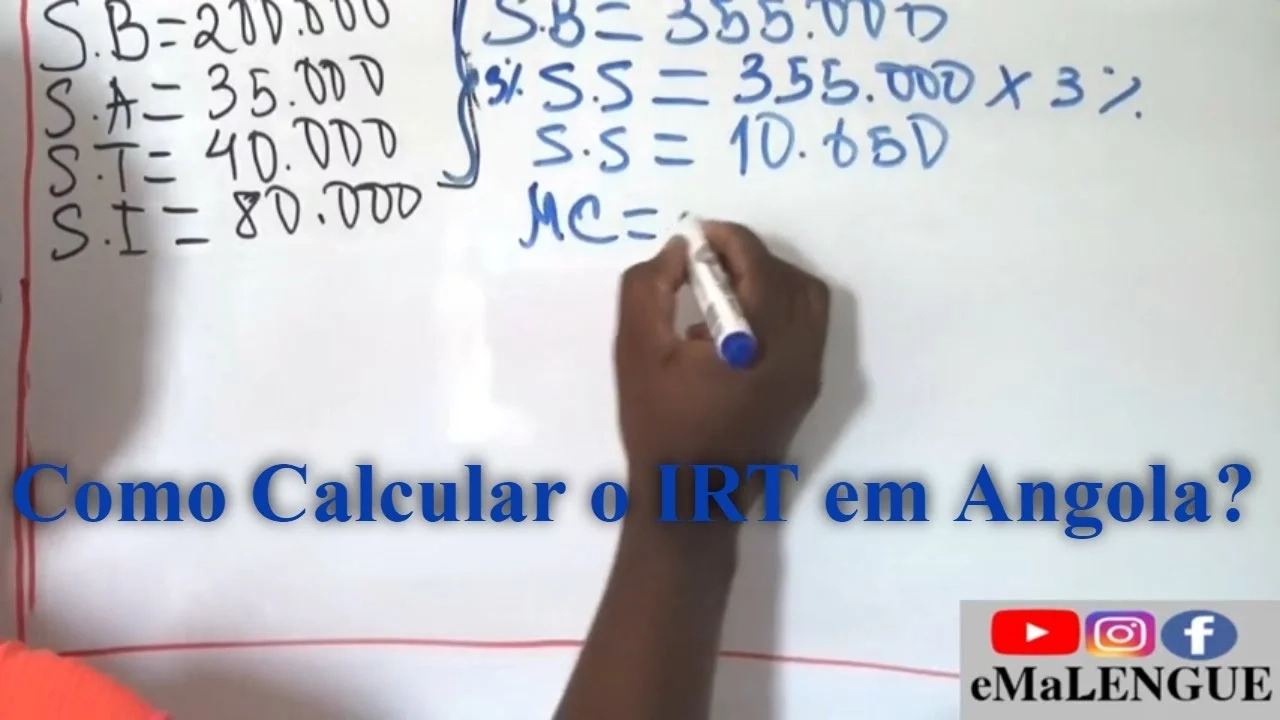 S.B=200.000
S.A=35.000
S.T=40.000
S.I=80.000
S.B=355.000
3% S.S=355.000 x 3%
S.S=10.650
MC=
Como Calcular o IRT em Angola?
eMaLENGUE